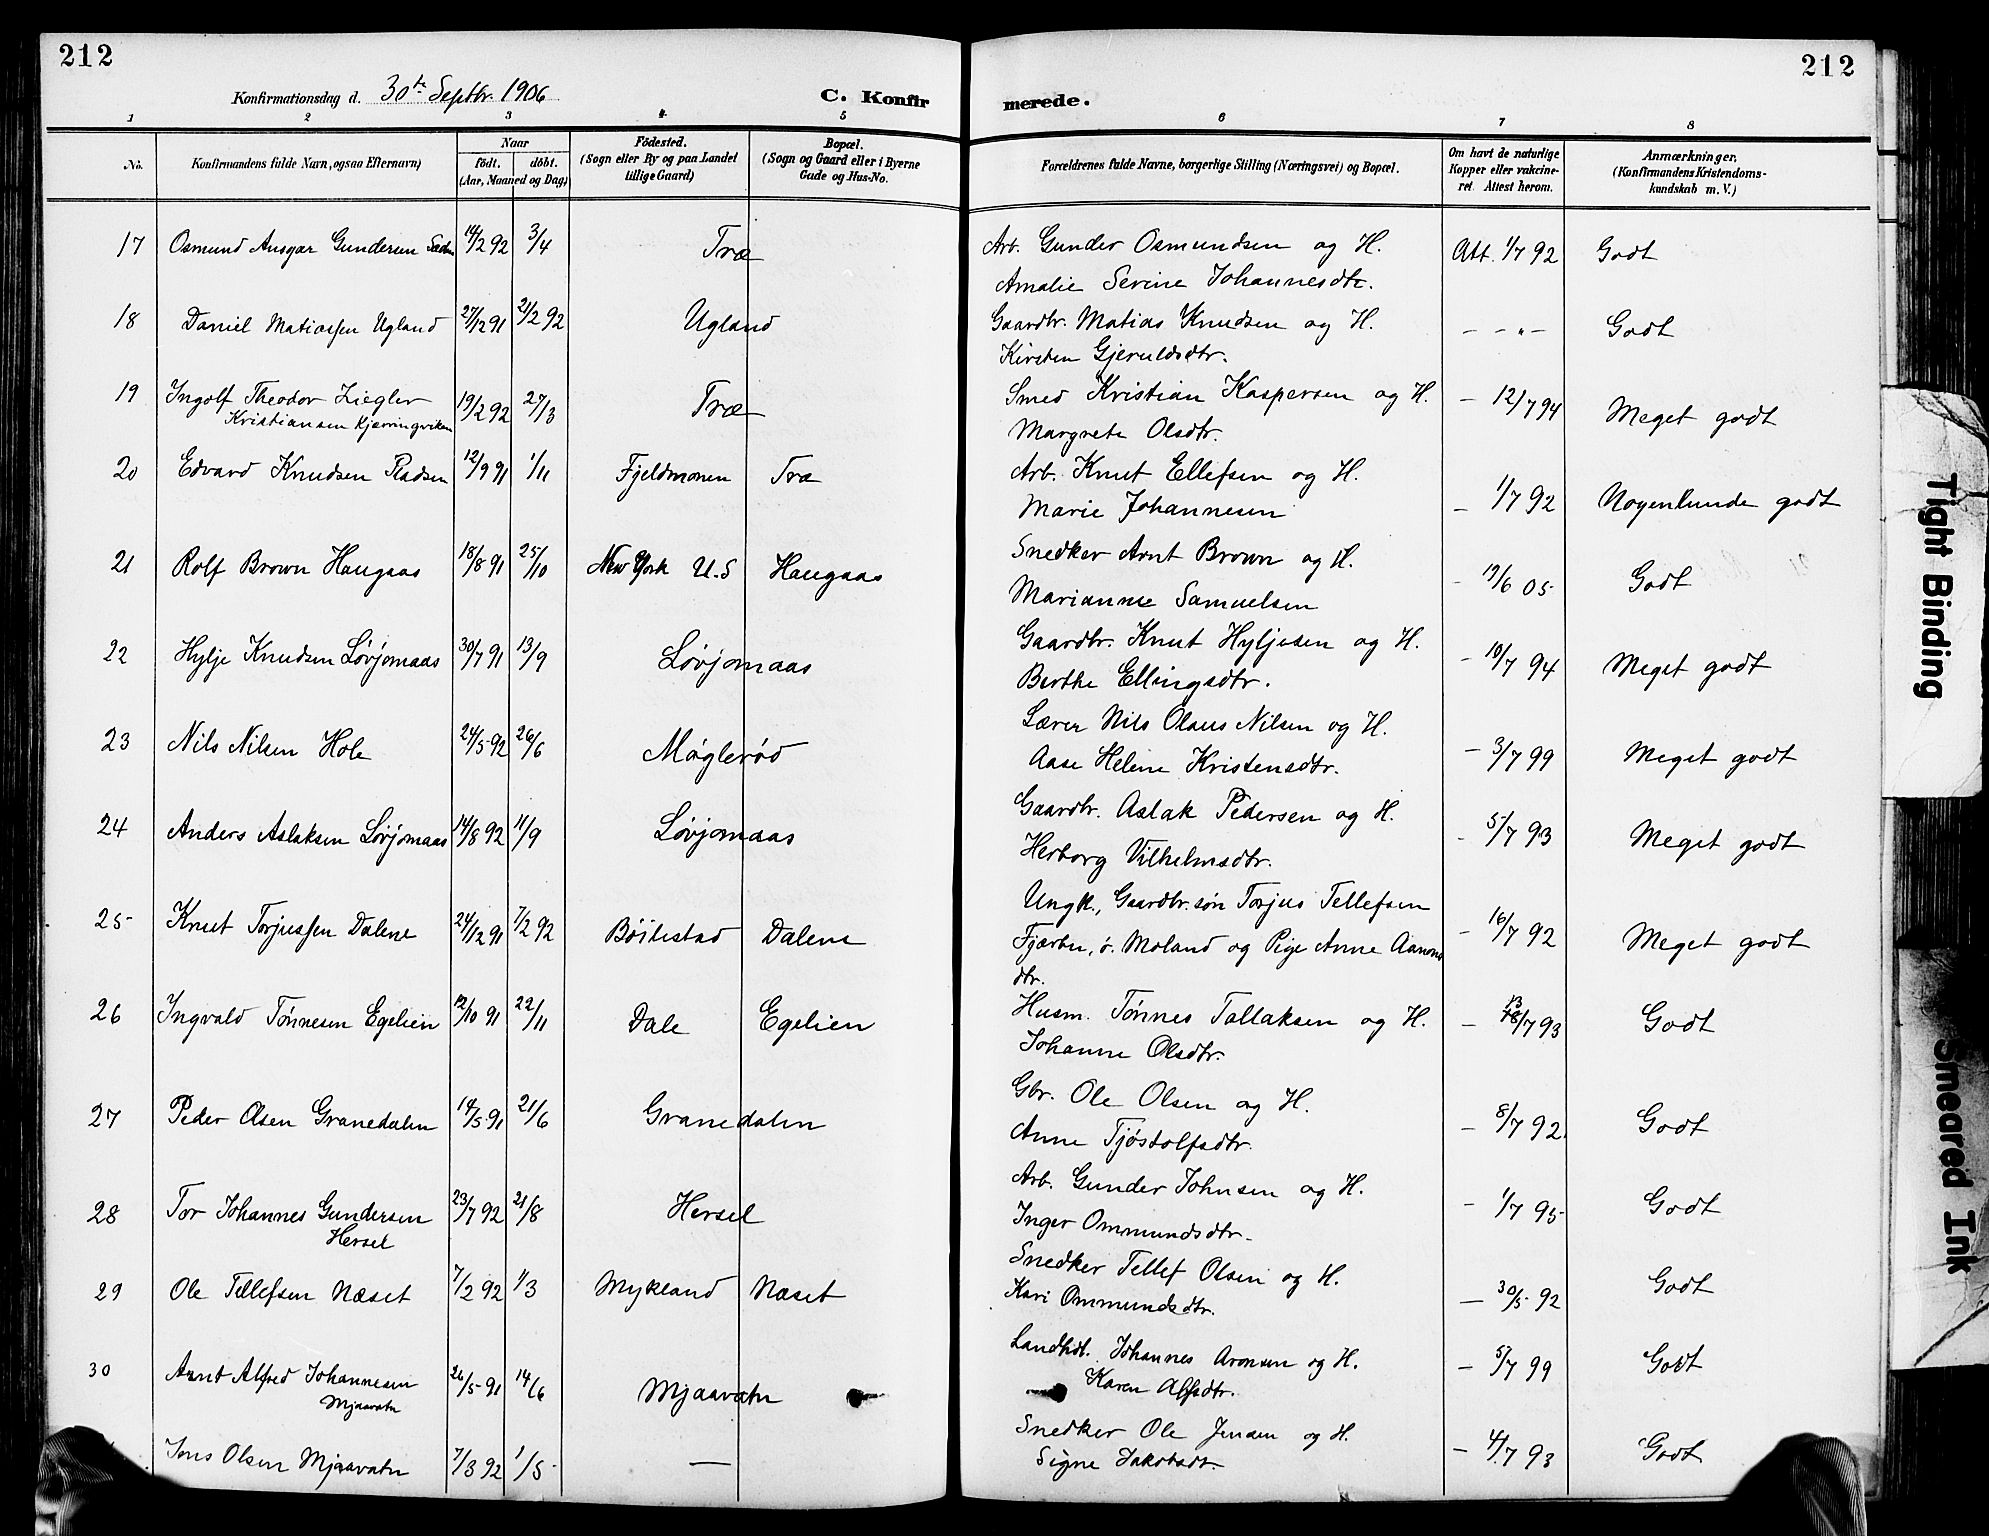 212
212
Konfirmationsdag d. 30te Septbr. 1906
C. Konfir
merede.
1 2 3 4 5 6 7 8
No.
Konfirmandens fulde Navn, ogsaa Efternavn)
Naar
født. døbt.
(Aar, Maaned og Dag)
Fødested.
(Sogn eller By og paa Landet
tillige Gaard)
Bopæl.
(Sogn og Gaard eller i Byerne
Gade og Hus-No.
Forældrenes fulde Navne, borgerlige Stilling (Næringsvei) og Bopæl.
Om havt de naturlige
Kopper eller vakcine-
ret. Attest herom.
Anmærkninger.
(Konfirmandens Kristendoms-
kundskab m. V.)
17 Osmund Ansgar Gundersen 14/2 92 3/4 Træ Arb. Gunder Osmundsen og H. Att. 1/7 92 Godt
Amalie Serine Johannesdtr.
18 Daniel Matiassen Ugland 27/12 91 21/2 92 Ugland Gaardbr. Matias Knudsen og H. – – " – Godt
Kirsten Gjeruldsdtr.
19 Ingolf Theodor Ziegler 19/2 92 27/3 Træ Smed Kristian Kaspersen og H. – 12/7 94 Meget godt
Kristiansen Kjærringviken Margrete Olsdtr.
20 Edvard Knudsen Pladsen 12/9 91 1/11 Fjeldmonen Træ Arb. Knut Ellefsen og H. – 1/7 92 Nogenlunde godt
Marie Johannesen
21 Rolf Brown Haugaas 18/8 91 25/10 New York U.S Haugaas Snedker Arnt Brown og H. – 19/6 05 Godt
Marianne Samuelsen
22 Hylje Knudsen Løvjomaas 30/7 91 13/9 Løvjomaas Gaardbr. Knut Hyljesen og H. – 10/7 94 Meget godt
Berthe Ellingsdtr.
23 Nils Nilsen Hole 24/5 92 26/6 Møglerød Lærer Nils Olaus Nilsen og H. – 3/7 99 Meget godt
Aase Helene Kristensdtr.
24 Anders Aslaksen Løvjomaas 14/8 92 11/9 Løvjomaas Gaardbr. Aslak Pedersen og H. – 5/7 93 Meget godt
Herborg Vilhelmsdtr.
25 Knut Torjussen Dalene 24/12 91 7/2 92 Bøilestad Dalene Ungk., Gaardbr.søn Torjus Tellefsen – 16/7 92 Meget godt
Fjærbu, ø. Moland og Pige Anne Aanons
dtr.
26 Ingvald Tønnesen Egelien 12/10 91 22/11 Dale Egelien Husm. Tønnes Tallaksen og H. – 13/7 93 Godt
Johanne Olsdtr.
27 Peder Olsen Granedalen 14/5 91 21/6 Granedalen Gbr. Ole Olsen og H. – 8/7 92 Godt
Anne Tjøstolfsdtr.
28 Tor Johannes Gundersen 23/7 92 21/8 Hersel Arb. Gunder Johnsen og H. – 1/7 95 Godt
Hersel Inger Ommundsdtr.
29 Ole Tellefsen Næset 7/2 92 1/3 Mykland Næset Snedker Tellef Olsen og H. – 30/5 92 Godt
Kari Ommundsdtr.
30 Arnt Alfred Johannesen 26/5 91 14/6 Mjaavatn Landhdl. Johannes Aronsen og H. – 5/7 99 Godt
Mjaavatn Karen Alfsdtr.
Jens Olsen Mjaavatn 7/3 92 1/5 — Snedker Ole Jensen og H. – 4/7 93 Godt
Signe Jakobsdt.
Tight Binding
Smeared Ink